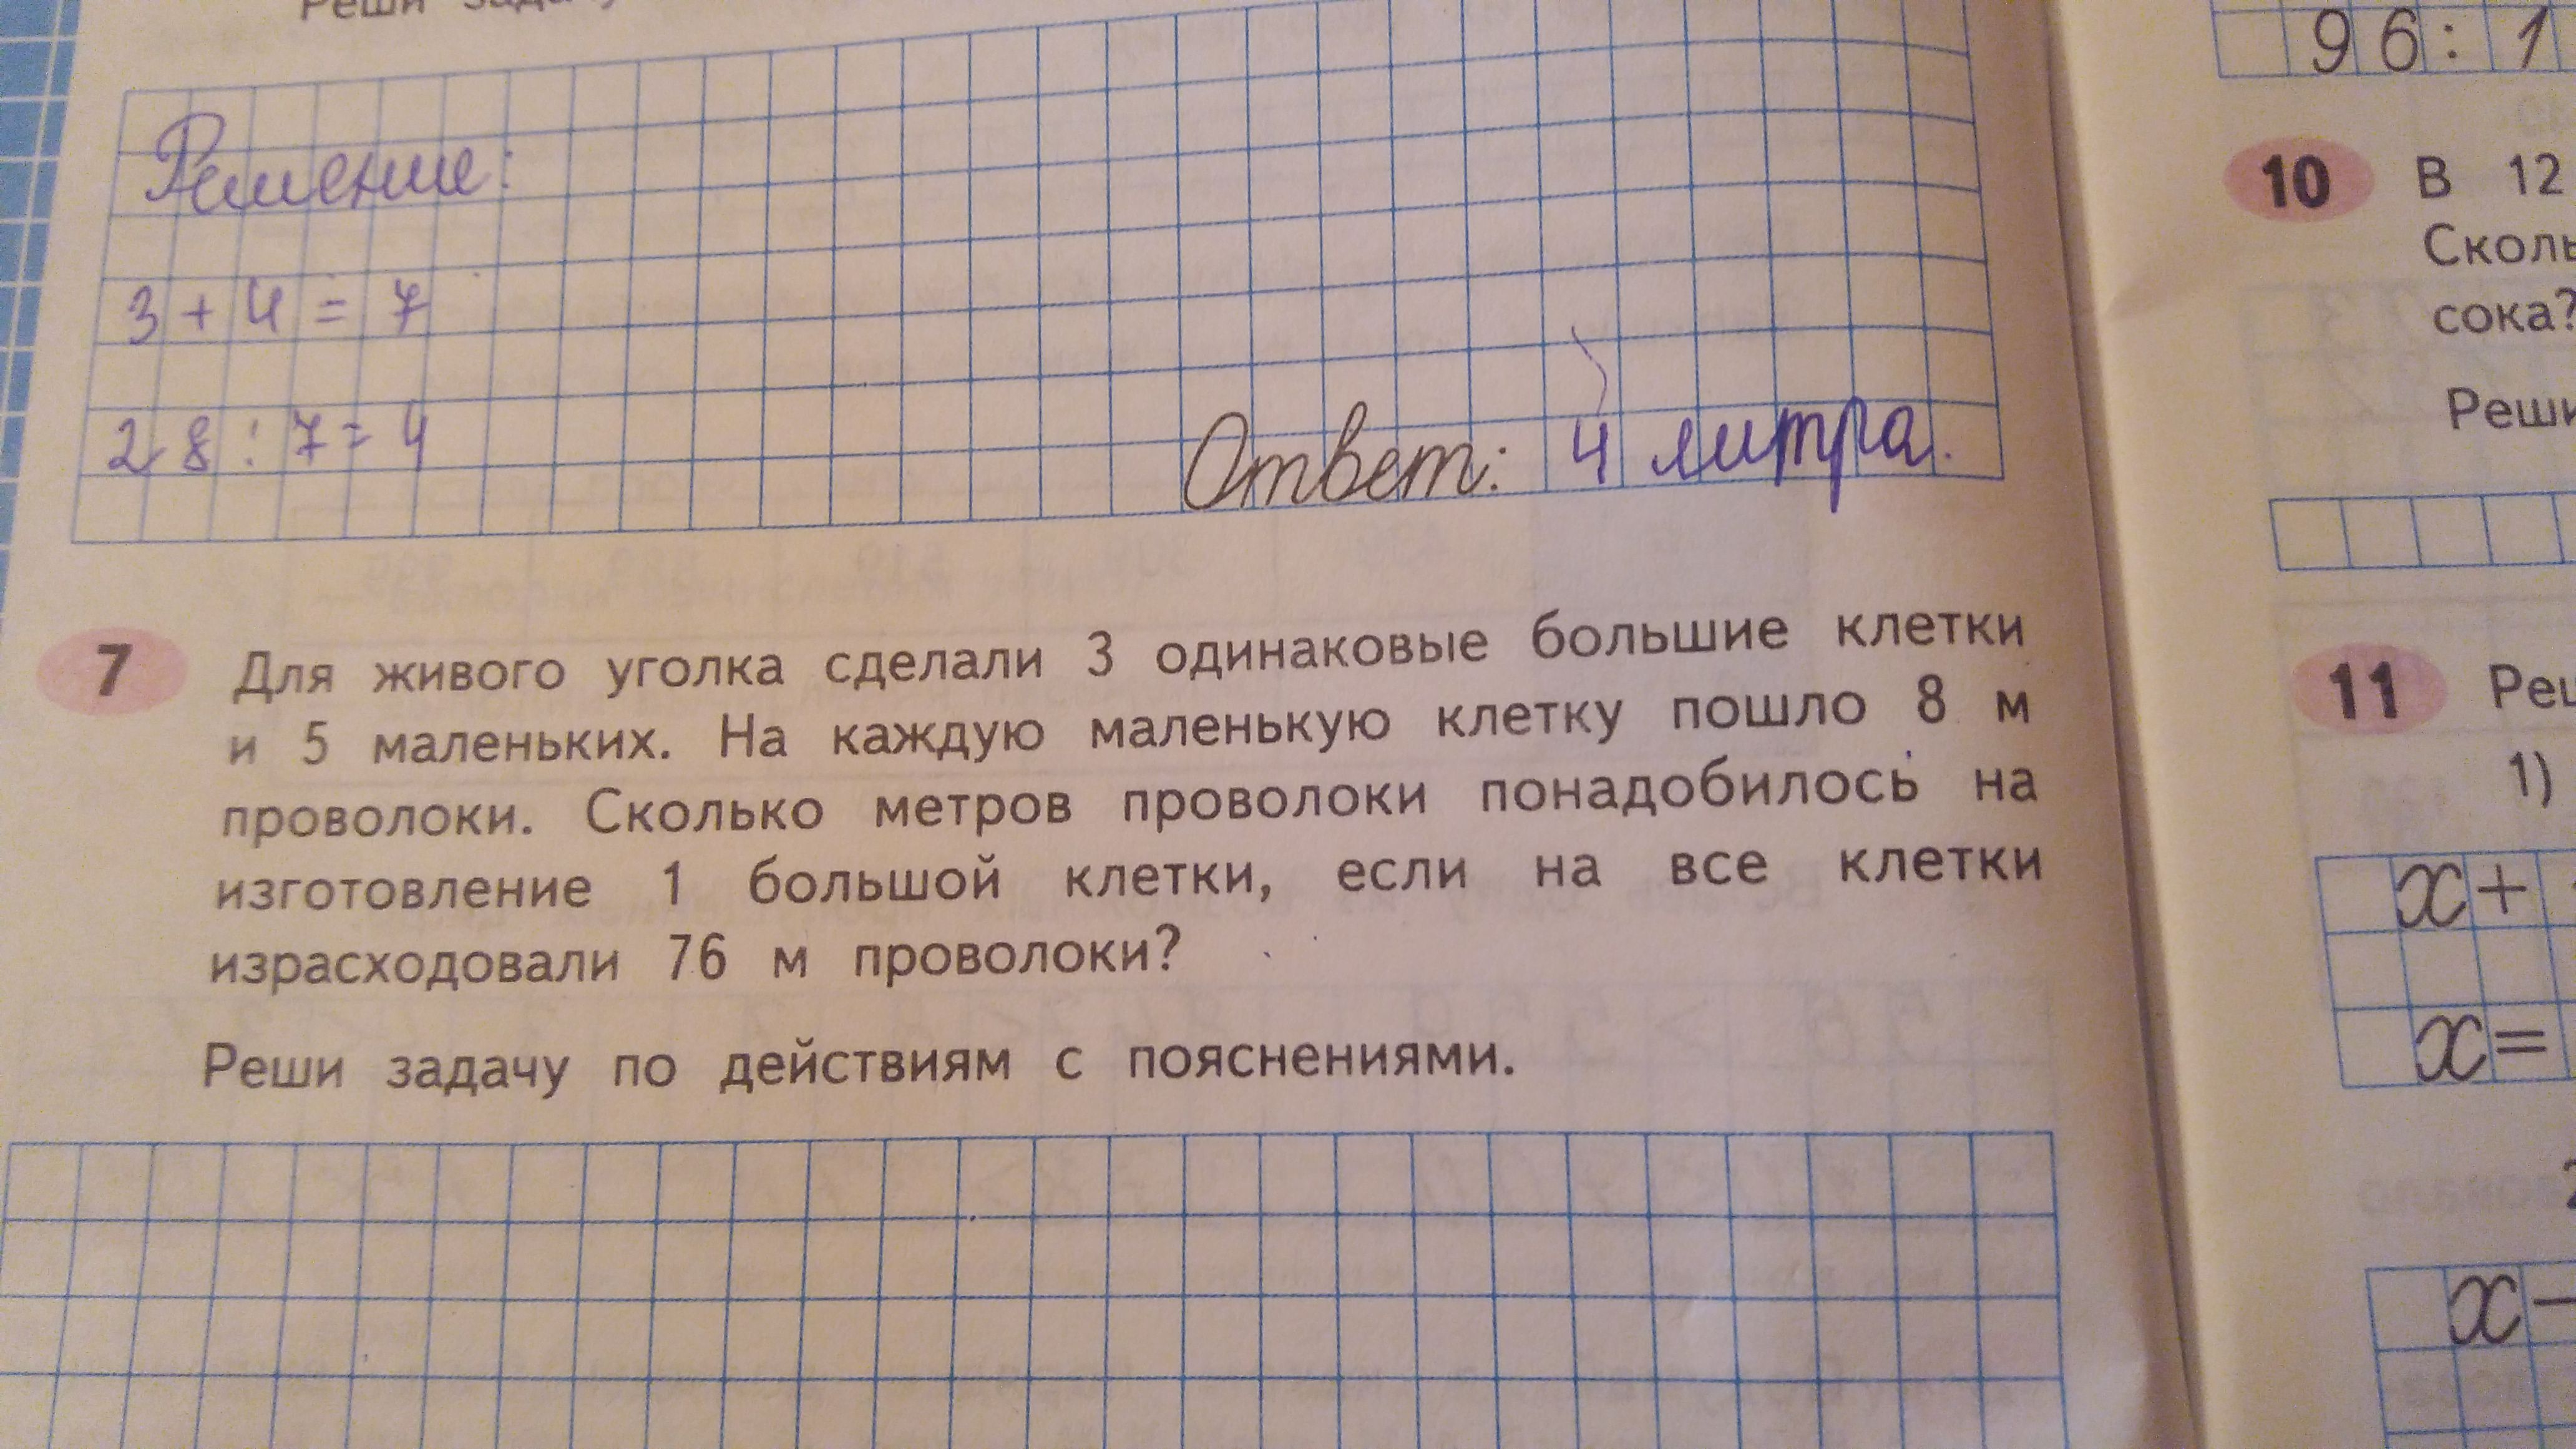 Реши задачу
Решение:
3 + 4 = 7
28 : 7 = 4
Ответ: 4 литра.
7 Для живого уголка сделали 3 одинаковые большие клетки
и 5 маленьких. На каждую маленькую клетку пошло 8 м
проволоки. Сколько метров проволоки понадобилось на
изготовление 1 большой клетки, если на все клетки
израсходовали 76 м проволоки?
Реши задачу по действиям с пояснениями.
96 : 1
10 В 12
сока?
11
1)
x+
x=
x-